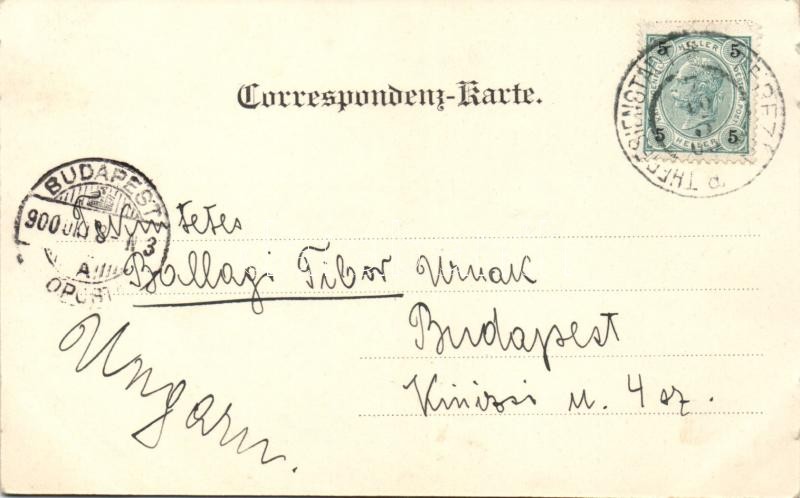 Correspondenz-Karte.
5 HELLER 5
5 HELLER 5
THERESIENSTADT
BUDAPEST
900 JUN 8 N 3
A
Tekintetes
Ballagi Tibor Urnak
Budapest
Kinizsi u. 4 sz.
Ungarn.